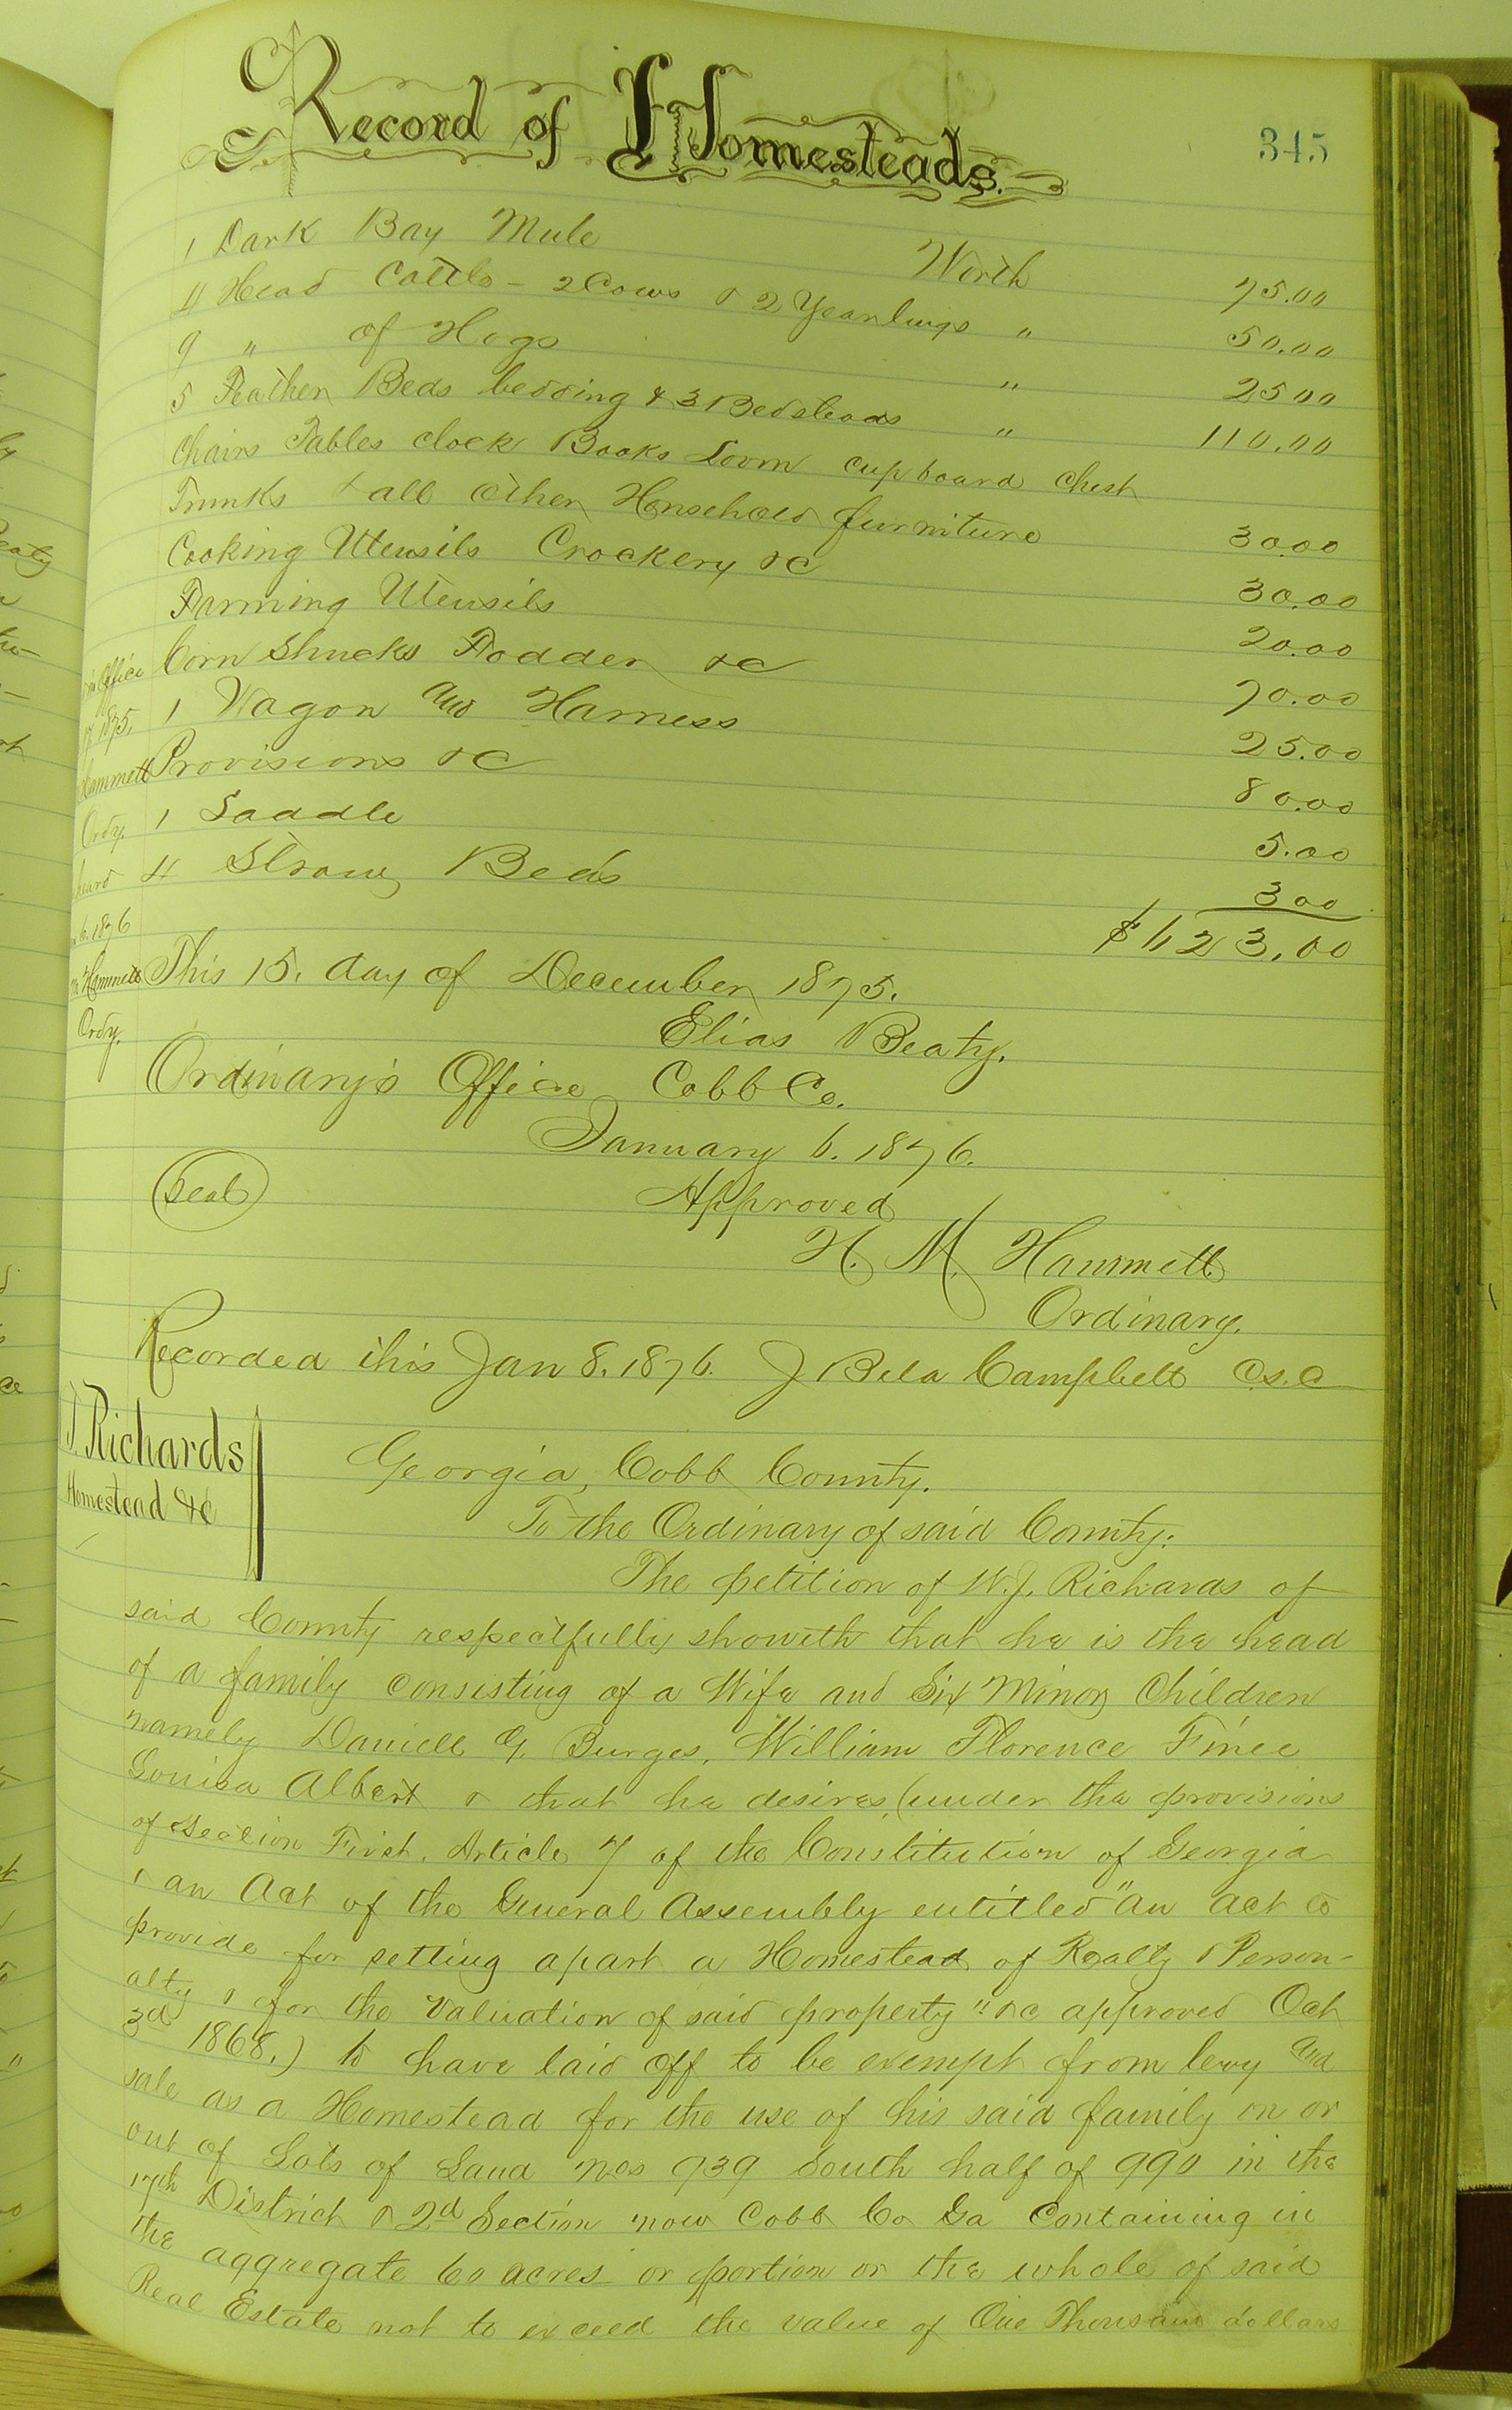 Record of Homesteads.
345
1 Dark Bay Mule Worth 75.00
4 Head Cattle - 2 Cows & 2 Yearlings " 50.00
9 " of Hogs " 25 00
5 Feather Beds bedding & 3 Bedsteads " 110.00
Chairs Tables Clock Books Loom cupboard Chest
Trunks & all other Household furniture 30.00
Cooking Utensils Crockery &C 30.00
Farming Utensils 20.00
Corn Shucks Fodder &C 70.00
1 Wagon and Harness 25.00
Provisions &C 80.00
1 Saddle 5.00
4 Straw Beds 3 00
$ 23.00
Office
1875.
Hammett
Ordy.
6. 1876
Hammett
Ordy.
This 15. day of December 1875.
Elias Beaty.
Ordinary's Office Cobb Co.
January 6. 1876.
(Seal) Approved
H. M. Hammett
Ordinary.
Recorded this Jan 8. 1876. J Bela Campbell C.S.C
J. Richards
Homestead &c
Georgia, Cobb County.
To the Ordinary of said County:
The petition of W.J. Richards of
said County respectfully showeth that he is the head
of a family consisting of a Wife and Six Minor Children
namely Daniell G. Burges, William Florence
Louisa Albert & that he desires (under the provisions
of Section First. Article 7 of the Constitution of Georgia
& an Act of the General Assembly entitled "An act to
provide for setting apart a Homestead of Realty & Person-
alty & for the Valuation of said property" &c approved Oct
3d 1868.) to have laid off to be exempt from levy and
sale as a Homestead for the use of his said family on or
out of Lots of Land Nos 939 South half of 990 in the
17th District & 2d Section now Cobb Co Ga Containing in
the aggregate 60 acres or portion or the whole of said
Real Estate not to exceed the value of One Thousand dollars